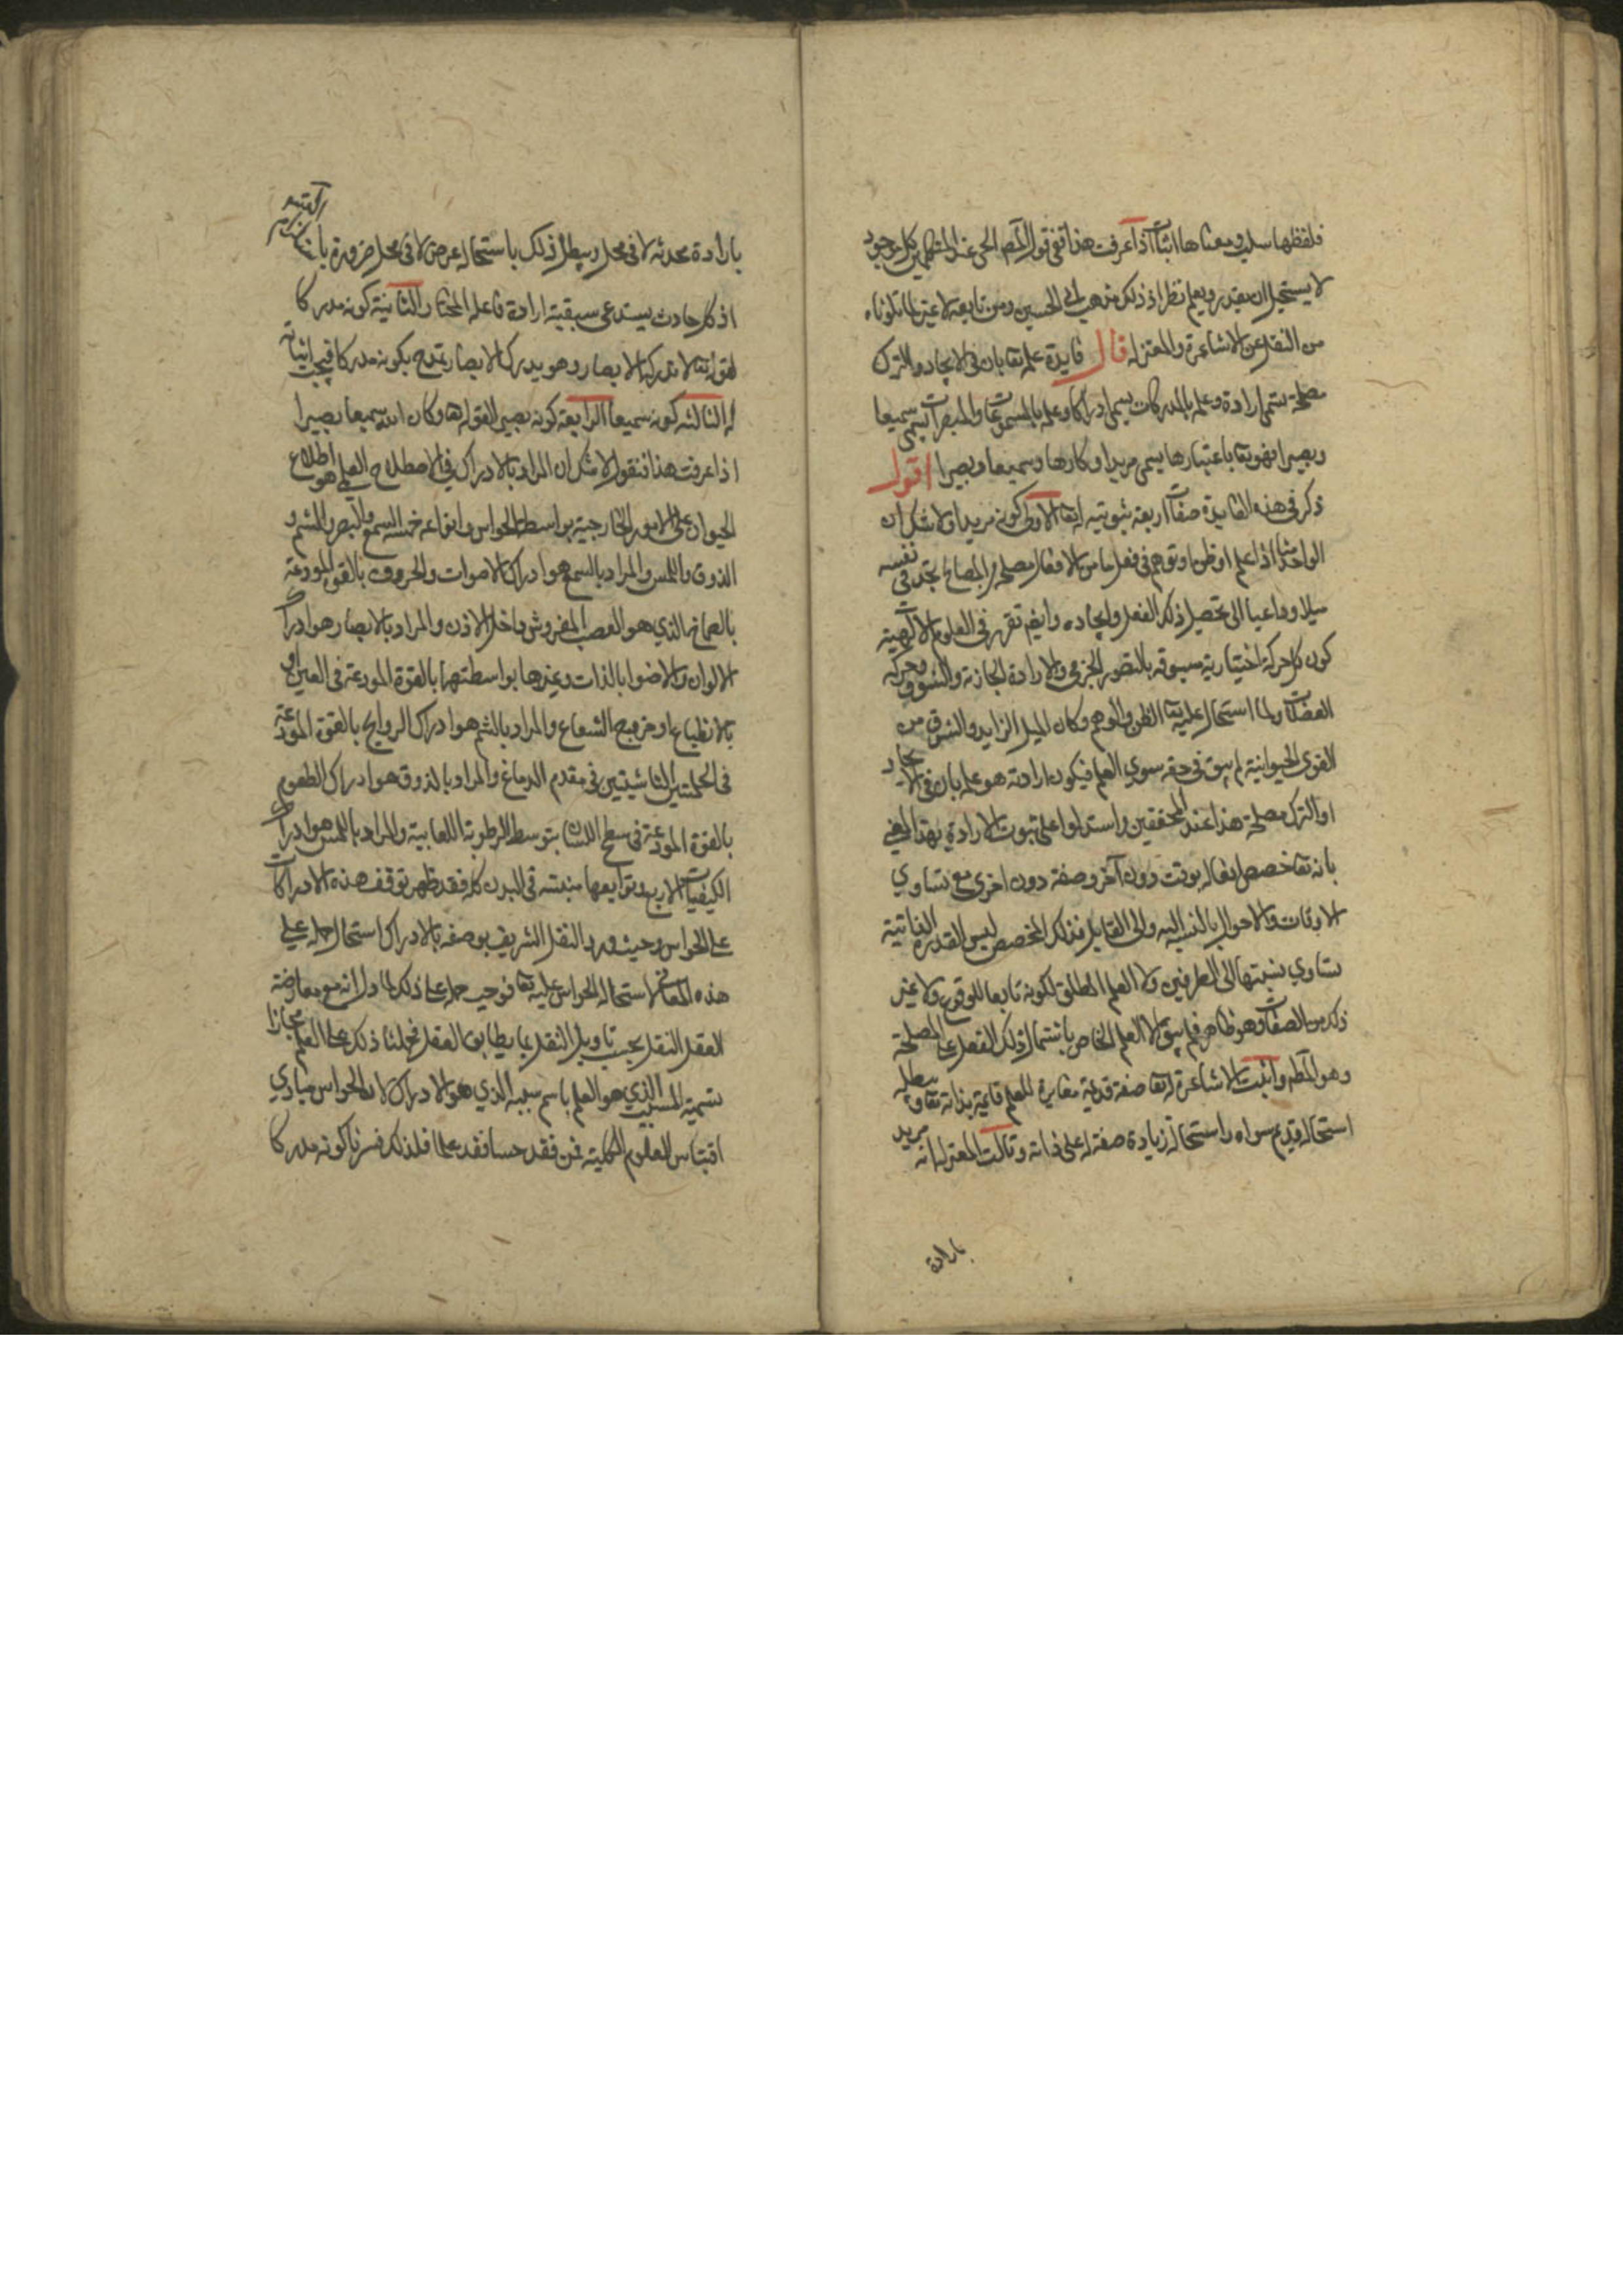 فلفظها سلب ومعناها اثبات اذا عرفت هذا ففي قول المصـ الحي عند المتكلمين كل موجود
لا يستحيل ان يقدر ويعلم نظر اذ ذلك مذهب ابي الحسين ومن تابعه لا غير لما تلوناه
من النقل عن الاشاعرة والمعتزله قال فايدة علمه تعا بان في الايجاد والترك
مصلحة يسمى ارادة وعلمه بالمدركات يسمى ادراكا وعلمه بالمسموعات والمبصرات يسمى سميعا
وبصيرا فهو تعا باعتبارها يسمى مريدا وكارها وسميعا وبصيرا اقول
ذكر في هذه الفايدة صفات اربعة ثبوتيه له تعا الاولى كونه مريدا ولا شك ان
الواحد منا اذا علم او ظن او توهم في فعل ما من الافعال مصلحة من المصالح يجد في نفسه
ميلا وداعيا الى تحصيل ذلك الفعل وايجاده وايضا تقرر في العلوم الالهية
كون كل حركة اختيارية مسبوقه بالتصور الجزئي والارادة الجازمة والشوق وحركه
العضلات ولما استحال عليه تعا الظن والوهم وكان الميل الزايد والشوق من
القوى الحيوانية لم يبق في حقه سوي العلم فيكون ارادته هو علمه بان في الايجاد
او الترك مصلحة هذا عند المحققين واستدلوا على ثبوت الارادة بهذا المعني
بانه تعا خصص افعاله بوقت دون آخر وصفة دون اخرى مع تساوي
الاوقات والاحوال بالنسبة اليه والى القابل فذلك المخصص ليس القدرة الذاتية
تساوي نسبتها الى الطرفين ولا العلم المطلق لكونه تابعا للوقوع ولا غير
ذلك من الصفات وهو ظاهر فلم يبق الا العلم الخاص باشتمال ذلك الفعل على المصلحة
وهو المطـ واثبت الاشاعرة له تعا صفة قديمة مغايرة للعلم قايمة بذاته تعا ويبطله
استحالة قديم سواه واستحالة زيادة صفة له على ذاته وقالت المعتزلة انه مريد
بارادة
بارادة محدثه لا في محل ويبطل ذلك باستحالة عرض لا في محل ضرورة
اذ كل حادث يستدعى سبقية ارادة فاعله المختار الثانية كونه مدركا
لقوله تعا لا تدركه الابصار وهو يدرك الابصار تمدح بكونه مدركا فيجب اثباته
له الثالثه كونه سميعا الرابعة كونه بصيرا لقوله تعا وكان الله سميعا بصيرا
اذا عرفت هذا فنقول لا شك ان المراد بالادراك في الاصطلاح العلمي هو اطلاع
الحيوان على الامور الخارجية بواسطة الحواس وانواعه خمسه السمع والبصر والشم و
الذوق واللمس والمراد بالسمع هو ادراك الاصوات والحروف بالقوة المودعة
بالصماخ الذي هو العصب المفروش داخل الاذن والمراد بالابصار هو ادراك
الالوان والاضوا بالذات وغيرها بواسطتهما بالقوة المودعة في العين او
بالانطباع او خروج الشعاع والمراد بالشم هو ادراك الروايح بالقوة المودعة
في الحلمتين الناشيتين في مقدم الدماغ والمراد بالذوق هو ادراك الطعوم
بالقوة المودعة في سطح اللسان بتوسط الرطوبة اللعابية والمراد باللمس هو ادراك
الكيفيات الاربع وتوابعها منبثه في البدن كله فقد ظهر توقف هذه الادراكات
على الحواس وحيث ورد النقل الشريف بوصفه بالادراك استحال حمله على
هذه المعاني لاستحالة الحواس عليه تعا فوجب حمله على ذلك لما دل انه مع معارضة
العقل النقل يجب تاويل النقل بما يطابق العقل فحملنا ذلك على العلم مجازا
تسمية المسبب الذي هو العلم باسم سببه الذي هو الادراك لان الحواس مبادي
اقتباس العلوم الكلية فمن فقد حسا فقد علما فلذلك فسرنا كونه مدركا